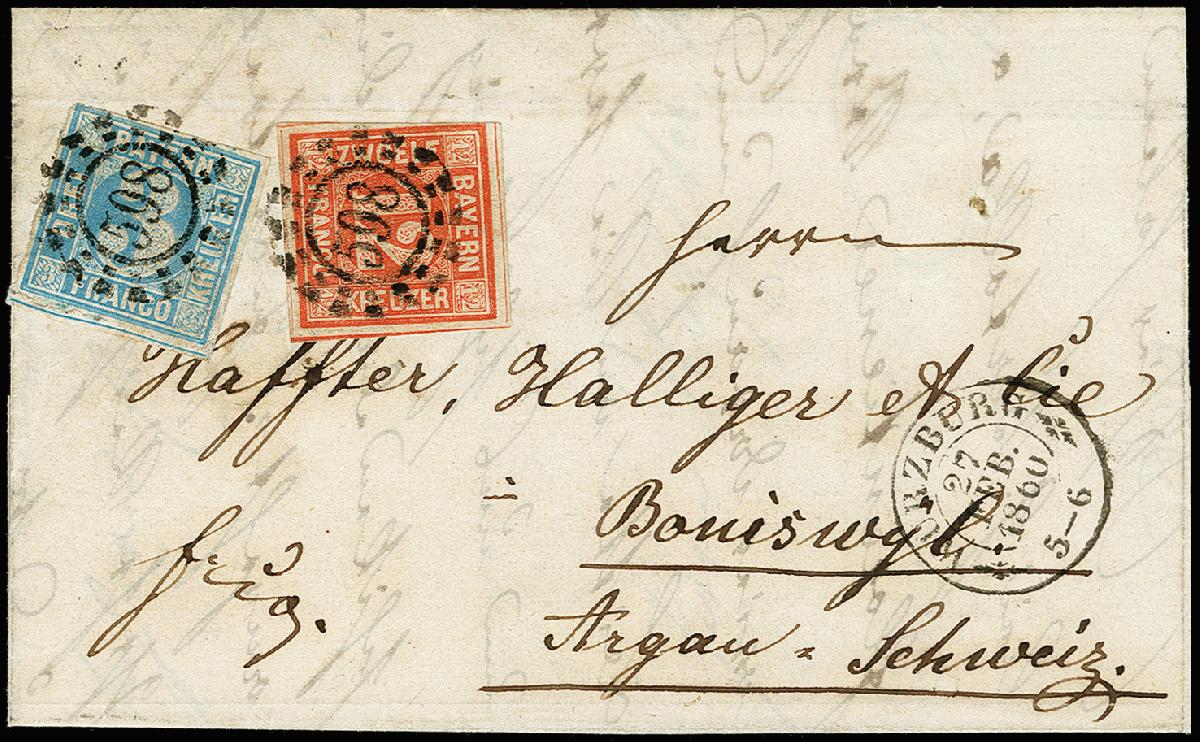 BAYERN
DREI
KREUZER
FRANCO
3
598
ZWÖLF
BAYERN
FRANCO
KREUZER
12
12
12
508
Herrn
Haffter, Halliger & Cie
in
Boniswyl.
Argau = Schweiz.
frco.
WÜRZBURG
27
FEB.
1860
5-6